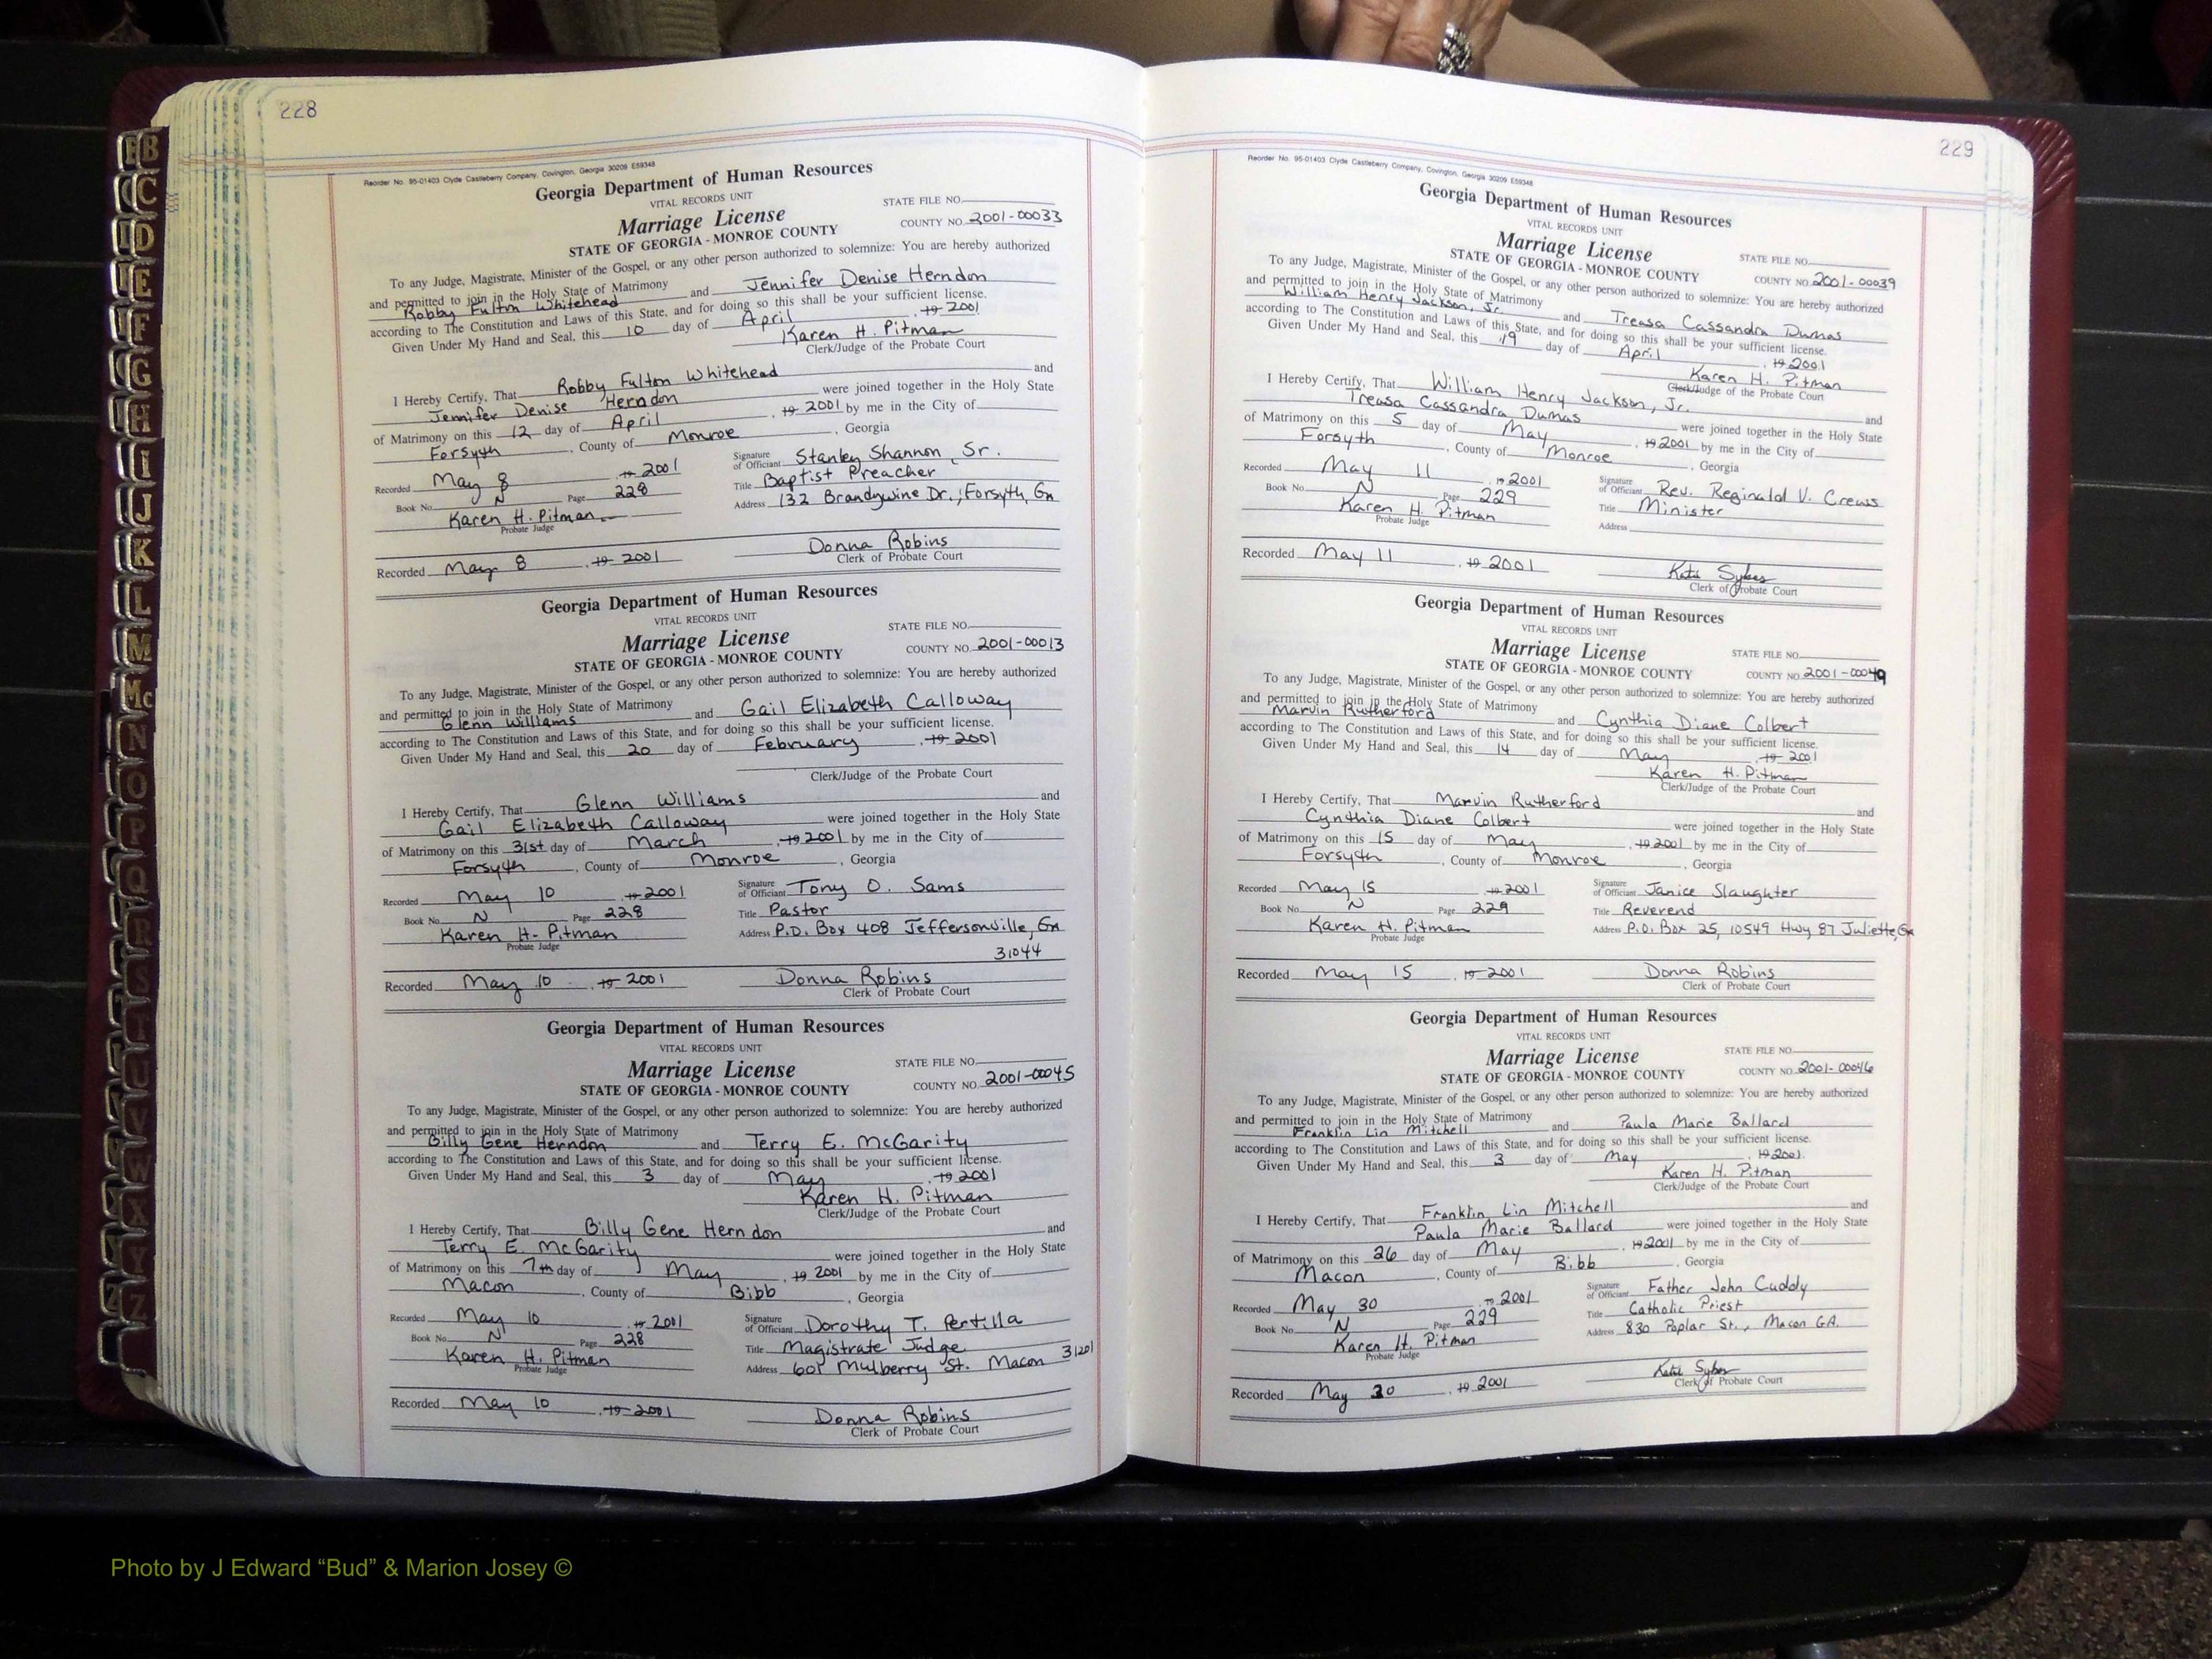 228
Reorder No. 95-01403 Clyde Castleberry Company, Covington, Georgia 30209 E59348
Georgia Department of Human Resources
VITAL RECORDS UNIT
STATE FILE NO.
Marriage License
COUNTY NO. 2001-00033
STATE OF GEORGIA - MONROE COUNTY
To any Judge, Magistrate, Minister of the Gospel, or any other person authorized to solemnize: You are hereby authorized
and permitted to join in the Holy State of Matrimony
Robby Fulton Whitehead and Jennifer Denise Herndon
according to The Constitution and Laws of this State, and for doing so this shall be your sufficient license.
Given Under My Hand and Seal, this 10 day of April, 19 2001
Karen H. Pitman
Clerk/Judge of the Probate Court
I Hereby Certify, That Robby Fulton Whitehead and
Jennifer Denise Herndon were joined together in the Holy State
of Matrimony on this 12 day of April, 19 2001 by me in the City of
Forsyth, County of Monroe, Georgia
Recorded May 8 19 2001 Signature of Officiant Stanley Shannon, Sr.
Book No. N Page 228 Title Baptist Preacher
Karen H. Pitman Address 132 Brandywine Dr., Forsyth, Ga
Probate Judge
Recorded May 8, 19 2001 Donna Robins
Clerk of Probate Court
Georgia Department of Human Resources
VITAL RECORDS UNIT
STATE FILE NO.
Marriage License
COUNTY NO. 2001-00013
STATE OF GEORGIA - MONROE COUNTY
To any Judge, Magistrate, Minister of the Gospel, or any other person authorized to solemnize: You are hereby authorized
and permitted to join in the Holy State of Matrimony
Glenn Williams and Gail Elizabeth Calloway
according to The Constitution and Laws of this State, and for doing so this shall be your sufficient license.
Given Under My Hand and Seal, this 20 day of February, 19 2001
Clerk/Judge of the Probate Court
I Hereby Certify, That Glenn Williams and
Gail Elizabeth Calloway were joined together in the Holy State
of Matrimony on this 31st day of March, 19 2001 by me in the City of
Forsyth, County of Monroe, Georgia
Recorded May 10, 19 2001 Signature of Officiant Tony O. Sams
Book No. N Page 228 Title Pastor
Karen H. Pitman Address P.O. Box 408 Jeffersonville, Ga
Probate Judge 31044
Recorded May 10, 19 2001 Donna Robins
Clerk of Probate Court
Georgia Department of Human Resources
VITAL RECORDS UNIT
STATE FILE NO.
Marriage License
COUNTY NO. 2001-00045
STATE OF GEORGIA - MONROE COUNTY
To any Judge, Magistrate, Minister of the Gospel, or any other person authorized to solemnize: You are hereby authorized
and permitted to join in the Holy State of Matrimony
Billy Gene Herndon and Terry E. McGarity
according to The Constitution and Laws of this State, and for doing so this shall be your sufficient license.
Given Under My Hand and Seal, this 3 day of May, 19 2001
Karen H. Pitman
Clerk/Judge of the Probate Court
I Hereby Certify, That Billy Gene Herndon and
Terry E. McGarity were joined together in the Holy State
of Matrimony on this 7th day of May, 19 2001 by me in the City of
Macon, County of Bibb, Georgia
Recorded May 10, 19 2001 Signature of Officiant Dorothy T.
Book No. N Page 228 Title Magistrate Judge
Karen H. Pitman Address 601 Mulberry St. Macon 31201
Probate Judge
Recorded May 10, 19 2001 Donna Robins
Clerk of Probate Court
229
Reorder No. 95-01403 Clyde Castleberry Company, Covington, Georgia 30209 E59348
Georgia Department of Human Resources
VITAL RECORDS UNIT
Marriage License
STATE FILE NO.
STATE OF GEORGIA - MONROE COUNTY
COUNTY NO. 2001-00039
To any Judge, Magistrate, Minister of the Gospel, or any other person authorized to solemnize: You are hereby authorized
and permitted to join in the Holy State of Matrimony
William Henry Jackson, Jr. and Treasa Cassandra Dumas
according to The Constitution and Laws of this State, and for doing so this shall be your sufficient license.
Given Under My Hand and Seal, this 19 day of April, 19 2001
Karen H. Pitman
Clerk/Judge of the Probate Court
I Hereby Certify, That William Henry Jackson, Jr. and
Treasa Cassandra Dumas were joined together in the Holy State
of Matrimony on this 5 day of May, 19 2001 by me in the City of
Forsyth, County of Monroe, Georgia
Recorded May 11, 19 2001 Signature of Officiant Rev. Reginald V. Crews
Book No. N Page 229 Title Minister
Karen H. Pitman Address
Probate Judge
Recorded May 11, 19 2001 Sykes
Clerk of Probate Court
Georgia Department of Human Resources
VITAL RECORDS UNIT
Marriage License
STATE FILE NO.
STATE OF GEORGIA - MONROE COUNTY
COUNTY NO. 2001-00049
To any Judge, Magistrate, Minister of the Gospel, or any other person authorized to solemnize: You are hereby authorized
and permitted to join in the Holy State of Matrimony
Marvin Rutherford and Cynthia Diane Colbert
according to The Constitution and Laws of this State, and for doing so this shall be your sufficient license.
Given Under My Hand and Seal, this 14 day of May, 19 2001
Karen H. Pitman
Clerk/Judge of the Probate Court
I Hereby Certify, That Marvin Rutherford and
Cynthia Diane Colbert were joined together in the Holy State
of Matrimony on this 15 day of May, 19 2001 by me in the City of
Forsyth, County of Monroe, Georgia
Recorded May 15, 19 2001 Signature of Officiant Janice Slaughter
Book No. N Page 229 Title Reverend
Karen H. Pitman Address P.O. Box 25, 10549 Hwy 87 Juliette, Ga
Probate Judge
Recorded May 15, 19 2001 Donna Robins
Clerk of Probate Court
Georgia Department of Human Resources
VITAL RECORDS UNIT
Marriage License
STATE FILE NO.
STATE OF GEORGIA - MONROE COUNTY
COUNTY NO. 2001-00046
To any Judge, Magistrate, Minister of the Gospel, or any other person authorized to solemnize: You are hereby authorized
and permitted to join in the Holy State of Matrimony
Franklin Lin Mitchell and Paula Marie Ballard
according to The Constitution and Laws of this State, and for doing so this shall be your sufficient license.
Given Under My Hand and Seal, this 3 day of May, 19 2001
Karen H. Pitman
Clerk/Judge of the Probate Court
I Hereby Certify, That Franklin Lin Mitchell and
Paula Marie Ballard were joined together in the Holy State
of Matrimony on this 26 day of May, 19 2001 by me in the City of
Macon, County of Bibb, Georgia
Recorded May 30, 19 2001 Signature of Officiant Father John Cuddy
Book No. N Page 229 Title Catholic Priest
Karen H. Pitman Address 830 Poplar St., Macon GA.
Probate Judge
Recorded May 30, 19 2001 Sykes
Clerk of Probate Court
B
C
D
E
F
G
H
I
J
K
L
M
Mc
N
O
P
Q
R
S
T
U
V
W
X
Y
Z
Photo by J Edward “Bud” & Marion Josey ©